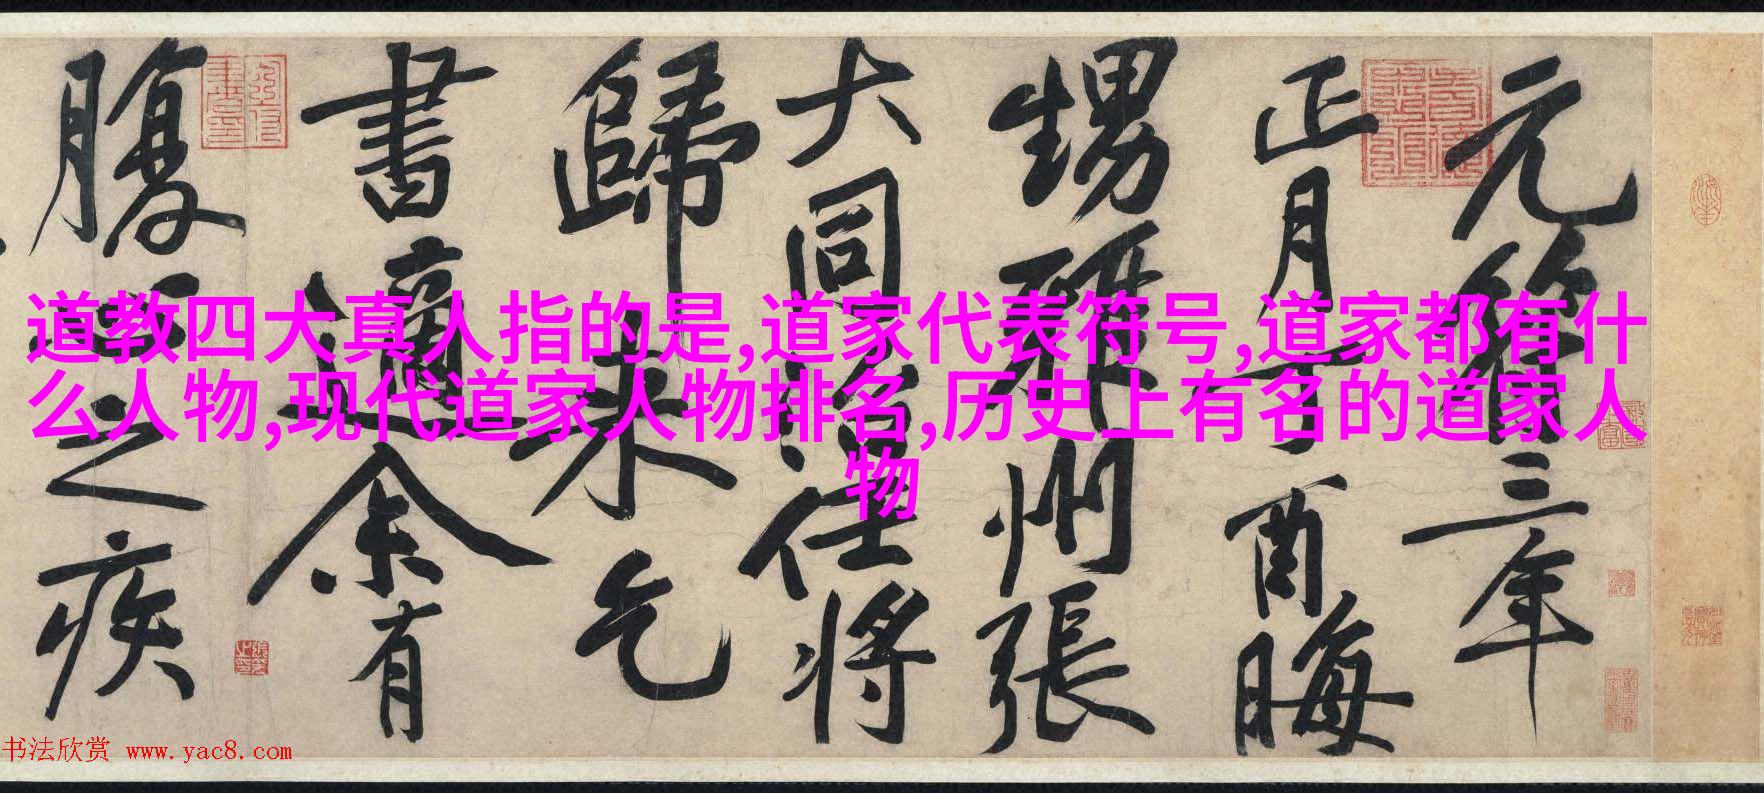 道教四大真人指的是,道家代表符号,道家都有什
么人物,现代道家人物排名,历史上有名的道家人
物
元符三年
正月丁酉晦
甥雅州張
大同治任將
歸來乞
書適余有
腹心之疾
书法欣赏 www.yac8.com